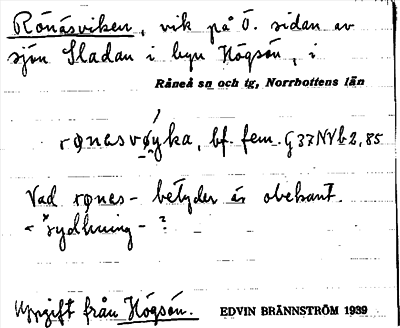 Rönäsviken, vik på Ö. sidan av
sjön Sladan i byn Högsön, i
Råneå sn och tg, Norrbottens län
rønesvøyka, bf. fem. G 37 NVb 2, 85
Vad rønes- betyder är obekant.
Uppgift från Högsön. EDVIN BRÄNNSTRÖM 1939